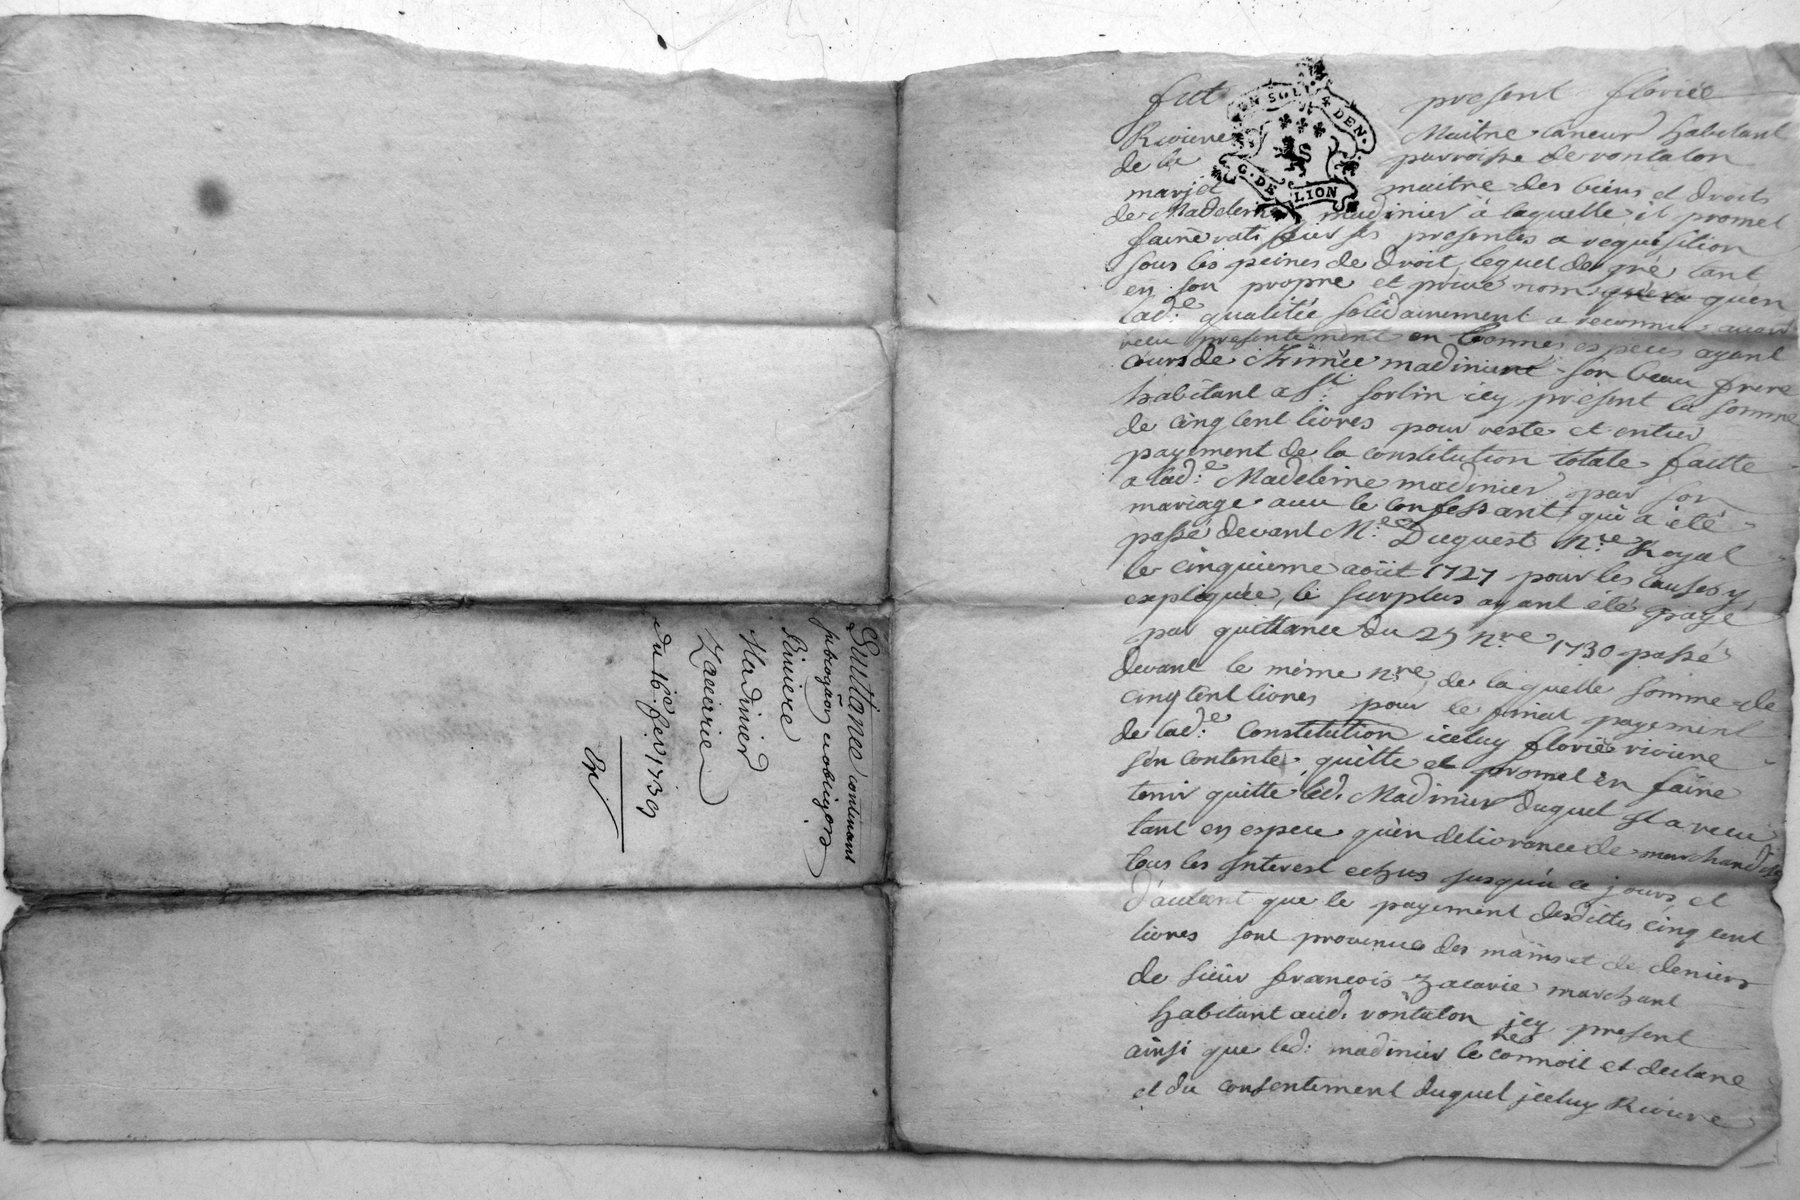 Quittance continant
subrogãon et obligõn
Riviere
Madinier
Zacarie
du 16e fer 1739
fut present floriee
UN SOL 4 DEN.
G. DE LION
Riviere Maitre taneur habitant
de la parroisse de vontalon
mary et maitre des biens et droits
de Madeleine madinier à laquelle il promet
faire ratiffier ses presentes a requisition
sous les peines de droit, lequel de gré tant
en son propre et privé nom qu'en
lad.e qualitée solidairement a reconnu avoir
receu presentement en bonnes especes ayant
cours de madinier son beau frere
habitant a St. sorlin icy present la somme
de cinq cent livres pour reste et entier
payement de la constitution totale faitte
a lad.e Madeleine madinier par son
mariage avec le confessant qui a été
passé devant M.e Duguest N.re Royal
le cinquieme août 1727 pour les causes y
expliquée, le surplus ayant été payé
par quittance du 25 n.re 1730 passé
devant le même n.re, de laquelle somme de
cinq cent livres pour le final payement
de lad.e Constitution iceluy floriee riviere
s'en contente, quitte et promet en faire
tenir quitte led. Madinier duquel il a receu
tant en espece qu'en delivrance de marchandise
tous les interest echus jusqu'à ce jours, et
d'autant que le payement desdittes cinq cent
livres sont provenue des mains et de deniers
de sieur francois Zacarie marchant
habitant aud. vontalon icy present
ainsi que led. madinier le reconnoit et declare
et du consentement duquel iceluy Riviere